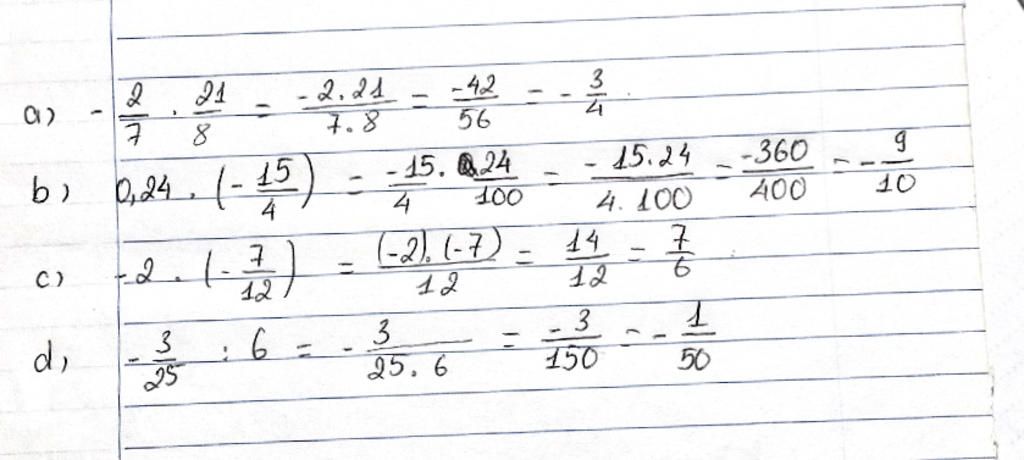 a) - 2/7 . 21/8 = -2.21/7.8 = -42/56 = - 3/4
b) 0,24 . (- 15/4) = -15/4 . 24/100 = -15.24/4.100 = -360/400 = - 9/10
c) -2 . (- 7/12) = (-2).(-7)/12 = 14/12 = 7/6
d, - 3/25 : 6 = - 3/25.6 = -3/150 = - 1/50